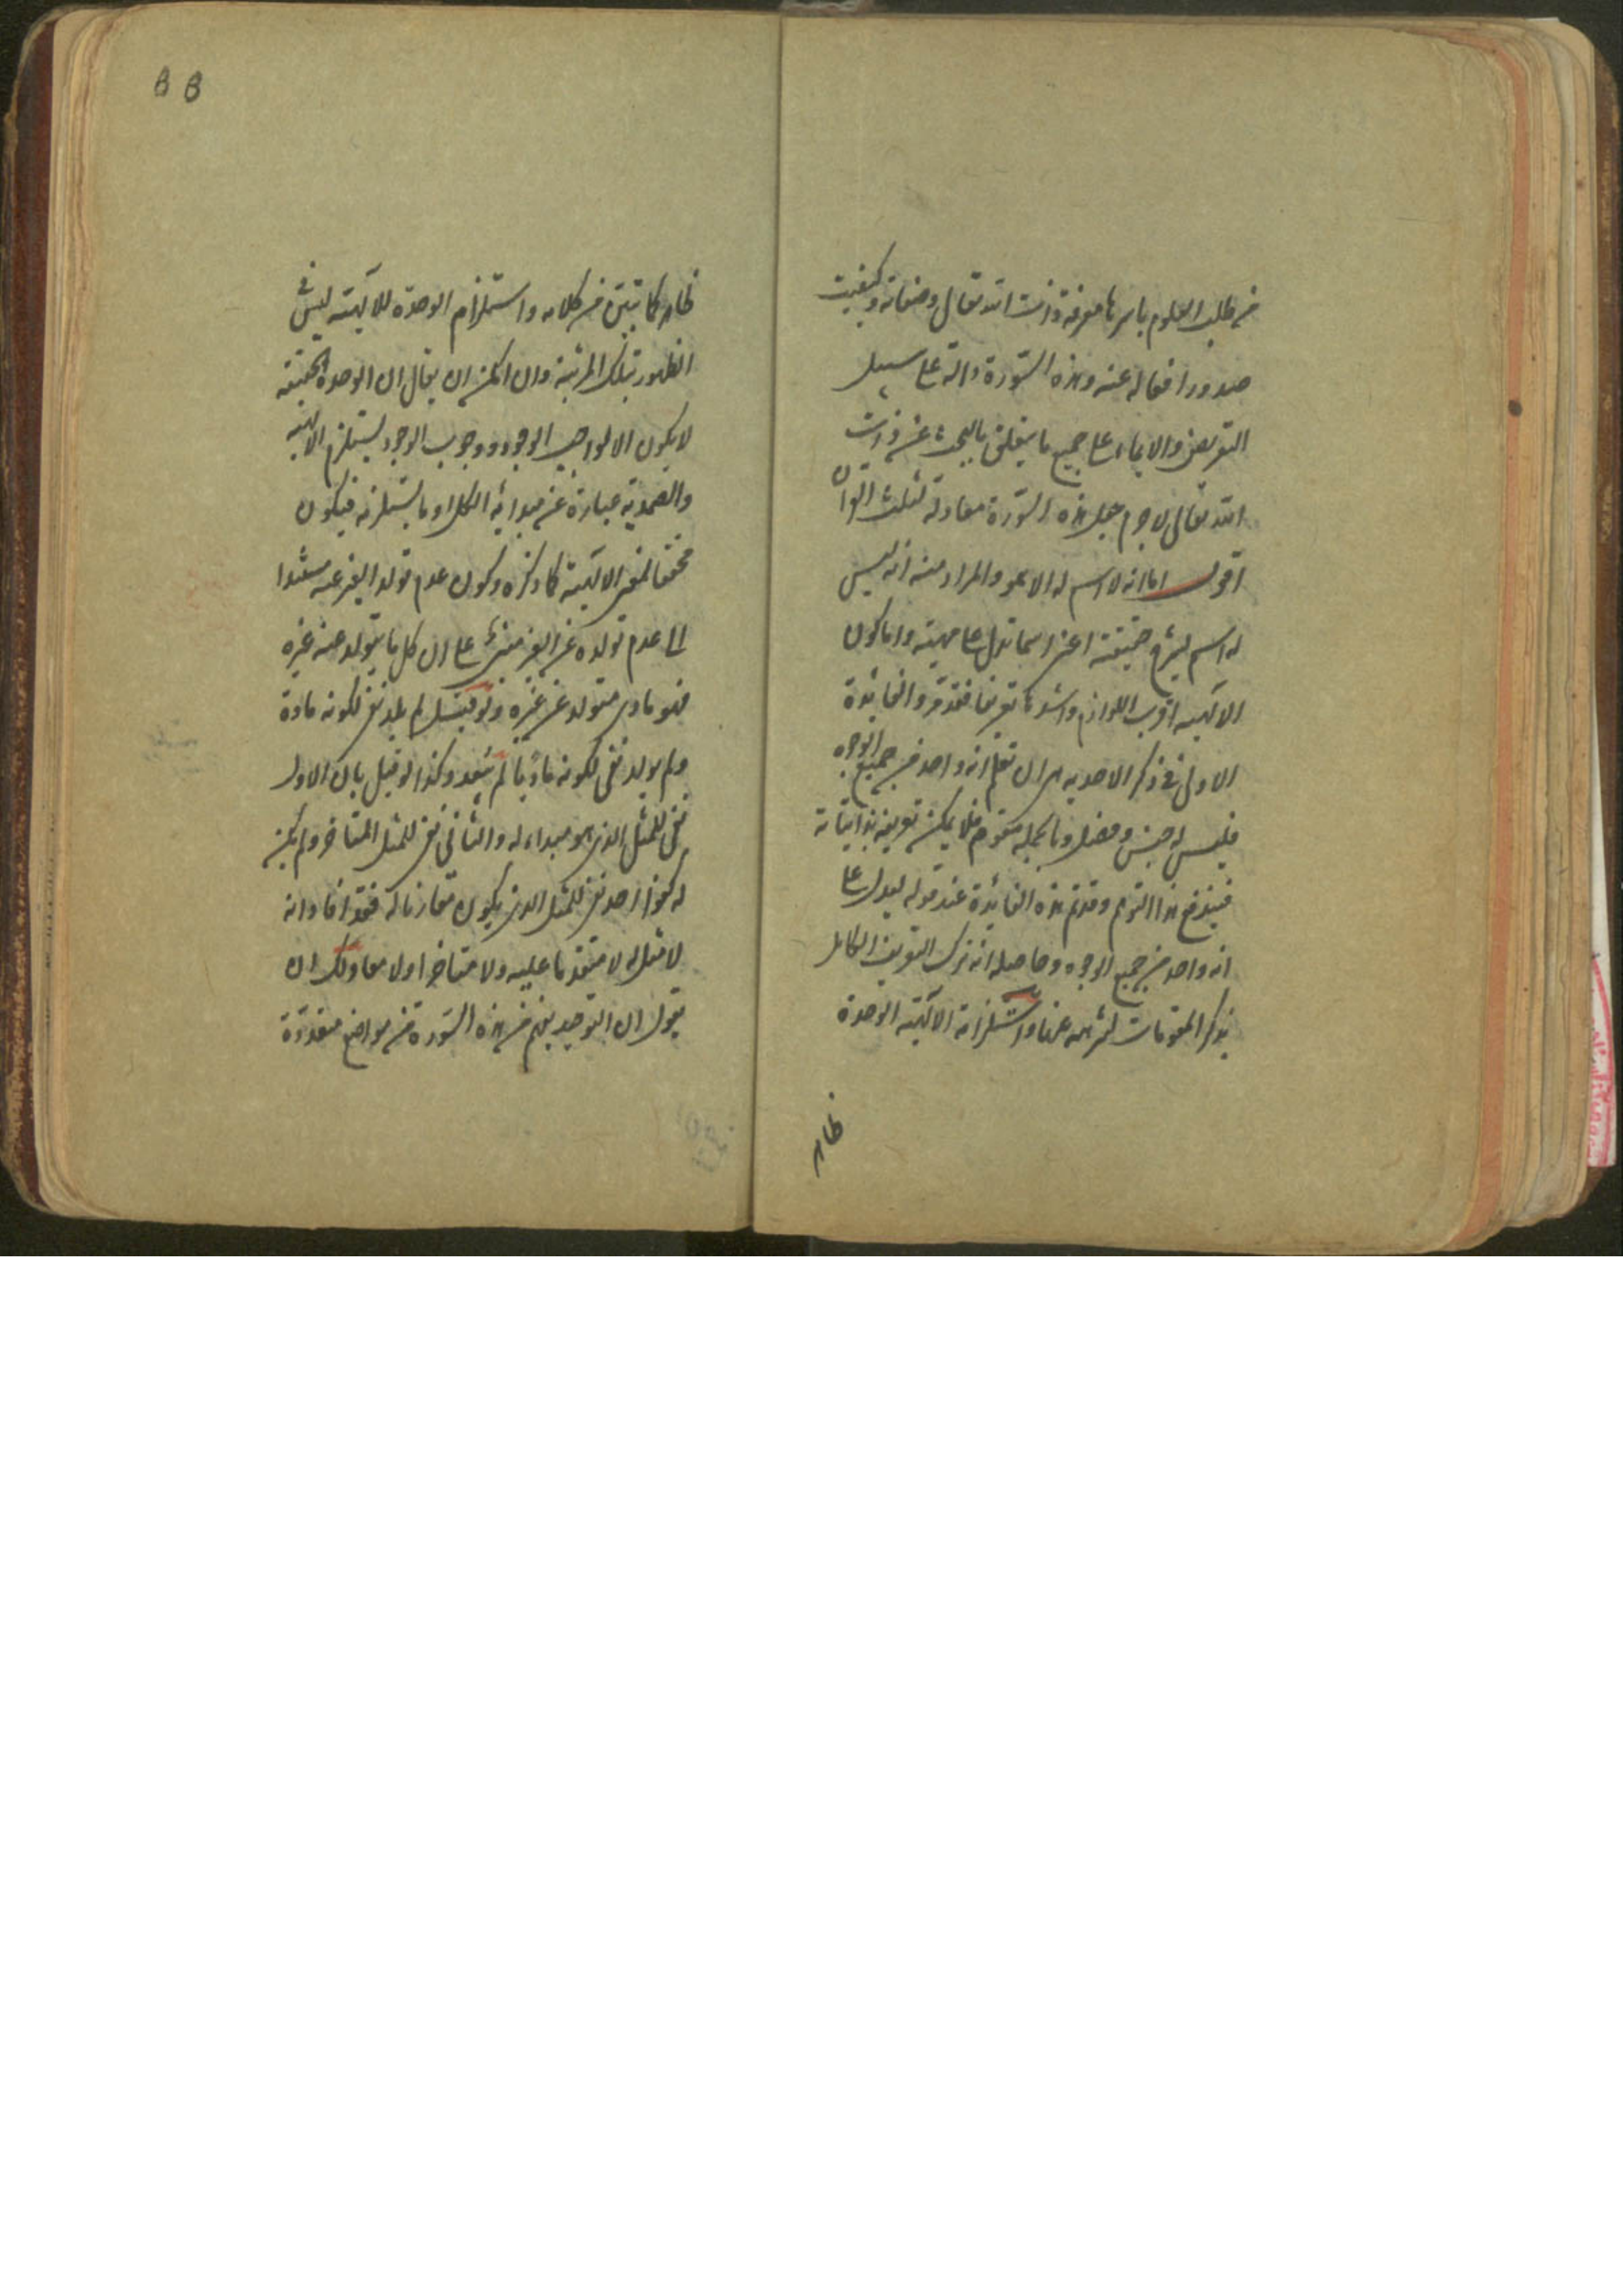 من طلب العلوم باسرها معرفة ذات الله تعالى وصفاته وكيفيت
صدور افعاله عنه وهذه السورة دالة على سبيل
التعريض والايماء على جميع ما يتعلق بالبحث عن ذات
الله تعالى لا جرم جعل هذه السورة معادلة لثلث القرآن
اقول اما انه لا اسم له الا هو والمراد منه انه ليس
له اسم يشرح حقيقته اعنى اسما تدل على مهيته واما كون
الالهية اقرب اللوازم واشدها تعريفا فقد مر والفائدة
الاولى فى ذكر الاحدية هى ان تعلم انه واحد من جميع الوجوه
فليس له جنس وفصل وبالجملة مقوم فلا يمكن تعريفه بذاتياته
فيندفع هذا التوهم وقد تم هذه الفائدة عند قوله ليدل على
انه واحد من جميع الوجوه وحاصله انه ترك التعريف الكامل
بذكر المقومات لتنزهه عنها واستلزامه الالهية الوحدة
ظاهر
88
ظاهر كما تبين من كلامه واستلزام الوحدة للالهية ليس فى
الظهور بتلك المرتبة وان امكن ان يقال ان الوحدة الحقيقية
لا يكون الا لواجب الوجود ووجوب الوجود يستلزم الالهية
والصمدية عبارة عن مبدائية الكل او ما يستلزمه فيكون
محققا لمعنى الالهية كما ذكره وكون عدم تولد الغير عنه مستندا
الى عدم تولده عن الغير مبنى على ان كل ما يتولد عنه غيره
فهو مادى متولد عن غيره ولو قيل لم يلد نفى لكونه مادة
ولم يولد نفى لكونه ماديا لم يبعد وكذا لو قيل بان الاول
نفى للمثل الذى هو مبداء له والثانى نفى للمثل المتاخر ولم يكن
له كفوا احد نفى للمثل الذى يكون مقارنا له فقد افاد انه
لا مثل له لا متقدما عليه ولا متاخرا ولا معا ولك ان
تقول ان التوحيد يفهم من هذه السورة من مواضع متعددة